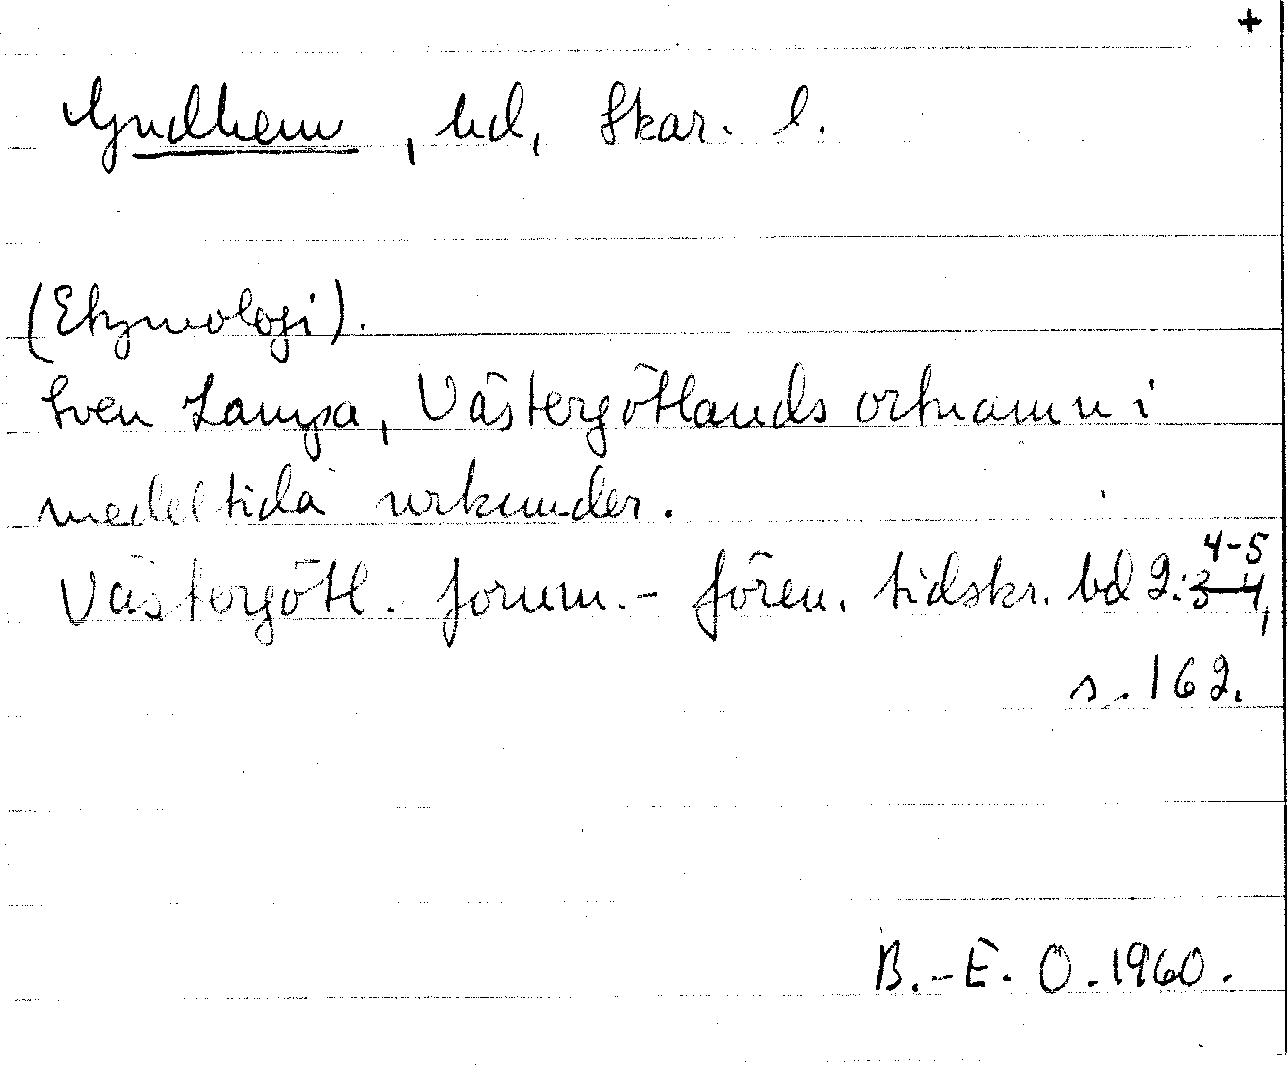 +
Gudhem, hd, Skar. l.
(Etymologi).
Sven Lampa, Västergötlands ortnamn i
medeltida urkunder.
4-5
Västergötl. fornm.- fören. tidskr. bd 2:3-4,
s. 162.
B.-E. O. 1960.